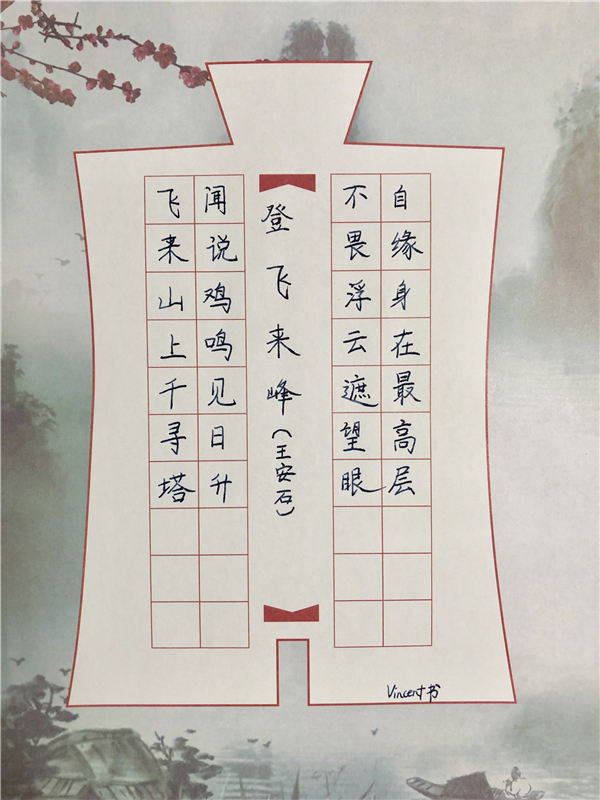 登飞来峰(王安石)
飞来山上千寻塔
闻说鸡鸣见日升
不畏浮云遮望眼
自缘身在最高层
Vincent书